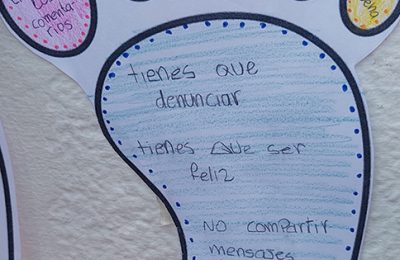 comenta
rios
tienes que
denunciar
tienes que ser
feliz
NO compartir
mensajes